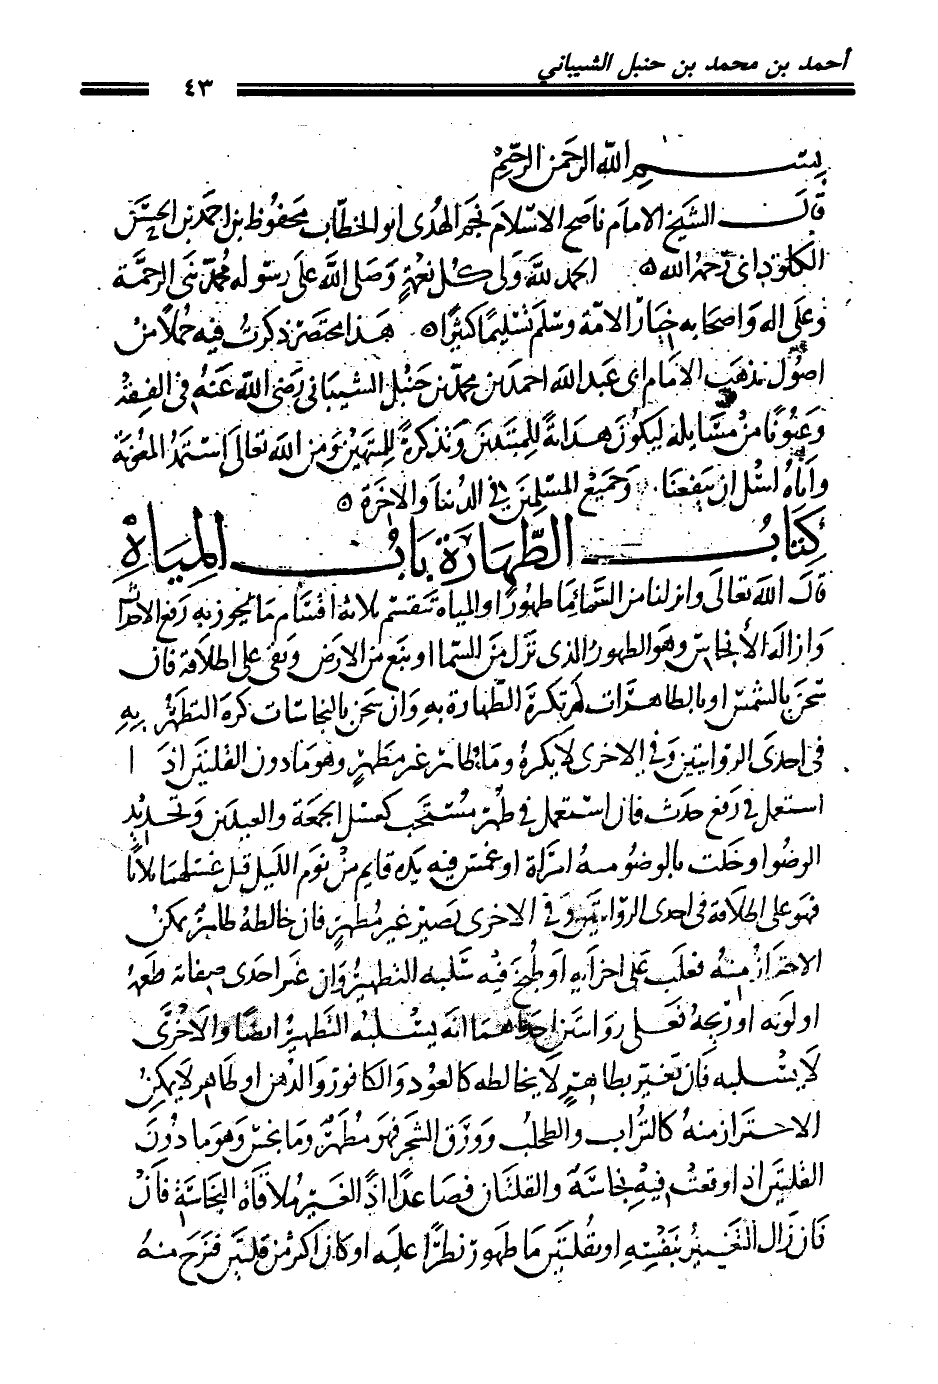 أحمد بن محمد بن حنبل الشيباني
٤٣
بسم الله الرحمن الرحيم
قال الشيخ الامام ناصح الاسلام نجم الهدى ابو الخطاب محفوظ بن احمد بن الحسن
الكلوذاني رحمه الله ه الحمد لله ولي كل نعمة وصلى الله على رسوله محمد نبي الرحمة
وعلى اله واصحابه خيار الامة وسلم تسليما كثيرا ه هذا مختصر ذكرت فيه جملا من
اصول مذهب الامام ابي عبد الله احمد بن محمد بن حنبل الشيباني رضي الله عنه في الفقه
وعيونا من مسايله ليكون هداية للمبتدين وتذكرة للمنتهين ومن الله تعالى استمد المعونة
واياه اسئل ان ينفعنا وجميع المسلمين في الدنيا والاخرة ه
كتاب الطهارة باب المياه
قال الله تعالى وانزلنا من السماء ما طهورا والمياه تنقسم ثلاثة اقسام ما يجوز به رفع الاحداث
وازالة الأنجاس وهو الطهور الذي نزل من السما او نبع من الارض وبقي على اطلاقه فان
سخن بالشمس او بالطاهرات لم تكره الطهارة به وان سخن بالنجاسات كره التطهر به
في احدى الروايتين وفي الاخرى لا يكره وما طاهر غير مطهر وهو ما دون القلتين اذ ا
استعمل في رفع حدث فان استعمل في طهر مستحب كغسل الجمعة والعيدين وتجديد
الوضوا وخلت بالوضو منه امراة او غمس فيه يده قايم من نوم الليل قبل غسلها ثلاثا
فهو على اطلاقه في احدى الروايتين وفي الاخرى يصير غير مطهر فان خالطه طاهر يمكن
الاحتراز منه فغلب على اجزايه او طبخ فيه سلبه التطهير وان غير احدى صفاته طعمه
او لونه او ريحه فعلى روايتين احداهما انه يسلبه التطهير ايضا والاخرى
لا يسلبه فان تغير بطاهر لا يخالطه كالعود والكافور والدهن او طاهر لا يمكن
الاحتراز منه كالتراب والطحلب وورق الشجر فهو مطهر وما نجس وهو ما دون
القلتين اذا وقعت فيه نجاسة والقلتان فصاعدا اذا تغير بملاقاة النجاسة فان
فان زال التغيير بنفسه او بقلتين ما طهور نطرا عليه او كان اكثر من قلتين فنزح منه